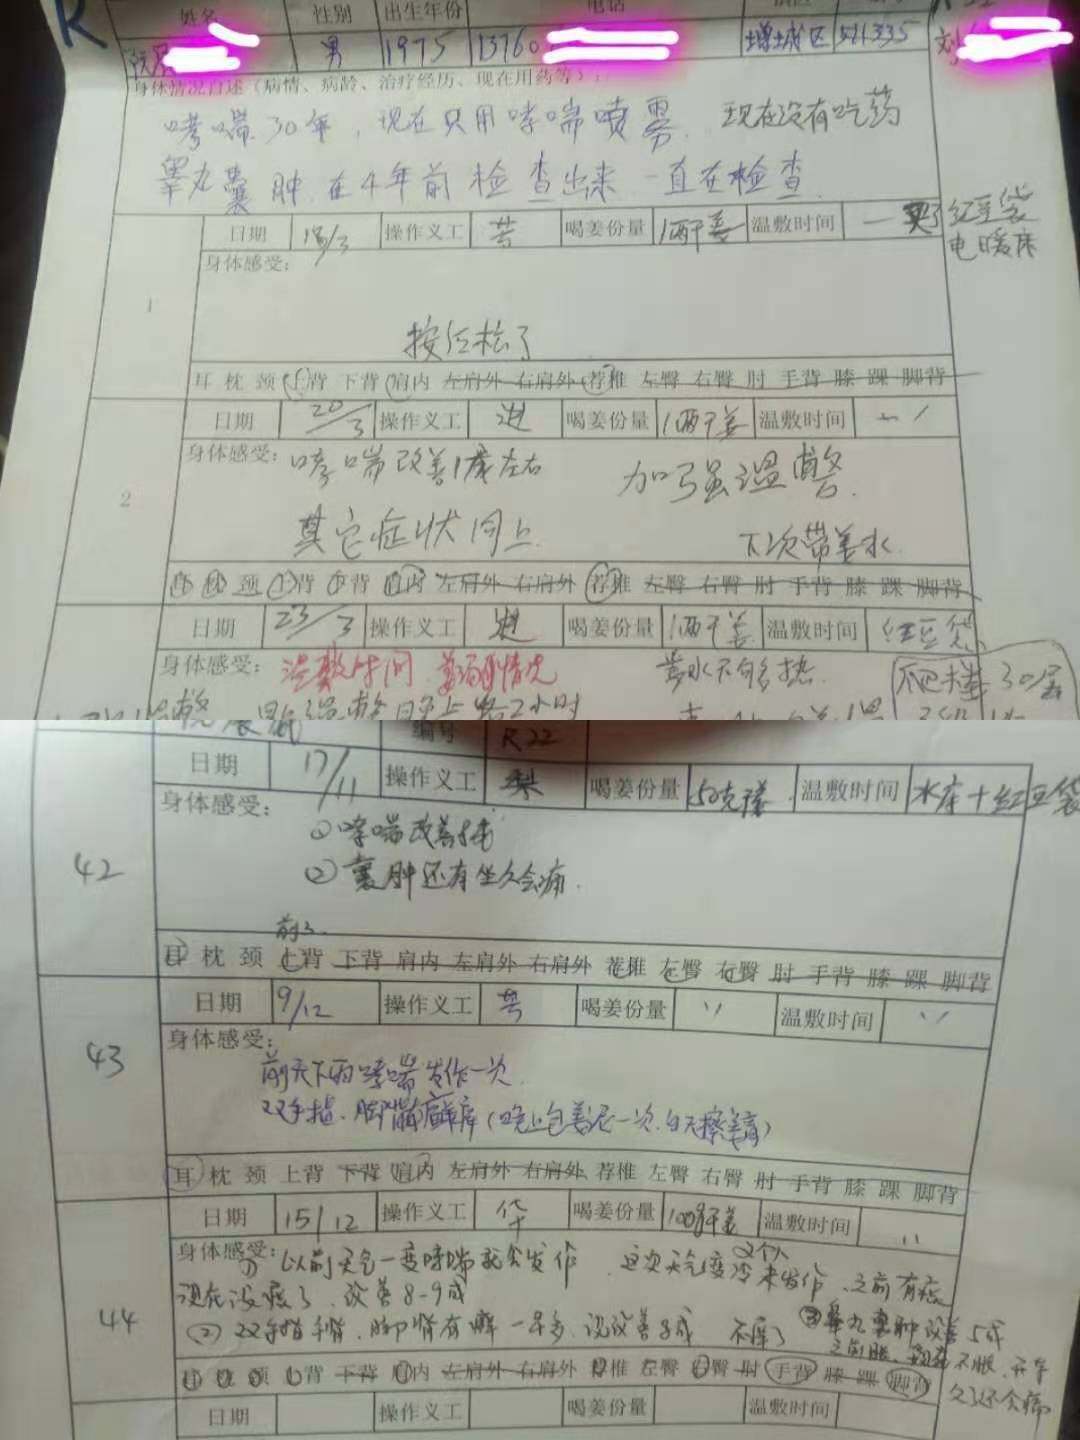 R
姓名 性别 出生年份 电话
男 1975 13760 增城区 511335 刘
身体情况自述（病情、病龄、治疗经历、现在用药等）：
哮喘30年，现在只用哮喘喷雾. 现在没有吃药
睾丸囊肿 在4年前检查出来 一直在检查
日期 18/3 操作义工 芸 喝姜份量 1两干姜 温敷时间 一买了红豆袋
电暖床
1
身体感受：
按位松了
耳 枕 颈 上背 下背 肩内 左肩外 右肩外 荐椎 左臀 右臀 肘 手背 膝 踝 脚背
2
日期 20/3 操作义工 进 喝姜份量 1两干姜 温敷时间
身体感受：哮喘改善1成左右 加强温敷
其它症状同上. 下次带姜水
耳 枕 颈 上背 下背 肩内 左肩外 右肩外 荐椎 左臀 右臀 肘 手背 膝 踝 脚背
日期 23/3 操作义工 进 喝姜份量 1两干姜 温敷时间 红豆袋
身体感受：温敷时间 姜水不够热 爬楼30层
小时
编号 R22
42
日期 17/11 操作义工 喝姜份量 50克 温敷时间 水床+红豆袋
身体感受：
① 哮喘改善8成
② 囊肿还有坐久会痛.
耳 枕 颈 上背 下背 肩内 左肩外 右肩外 荐椎 左臀 右臀 肘 手背 膝 踝 脚背
43
日期 9/12 操作义工 芸 喝姜份量 〃 温敷时间 〃
身体感受：
前天下雨哮喘发作一次
双手指、脚背癣痒（晚上包姜泥一次.白天擦姜膏）
耳 枕 颈 上背 下背 肩内 左肩外 右肩外 荐椎 左臀 右臀 肘 手背 膝 踝 脚背
44
日期 15/12 操作义工 华 喝姜份量 100g干姜 温敷时间 〃
身体感受：① 以前天气一变哮喘就会发作 这次天气变冷未发作 之前有痰
现在没痰了，改善8-9成
② 双手指手背、脚背有癣 改善8成 不痒了 ③睾丸囊肿改善5成
之前胀、现在不胀、开车
久了还会痛
耳 枕 颈 上背 下背 肩内 左肩外 右肩外 荐椎 左臀 右臀 肘 手背 膝 踝 脚背
日期 操作义工 喝姜份量 温敷时间